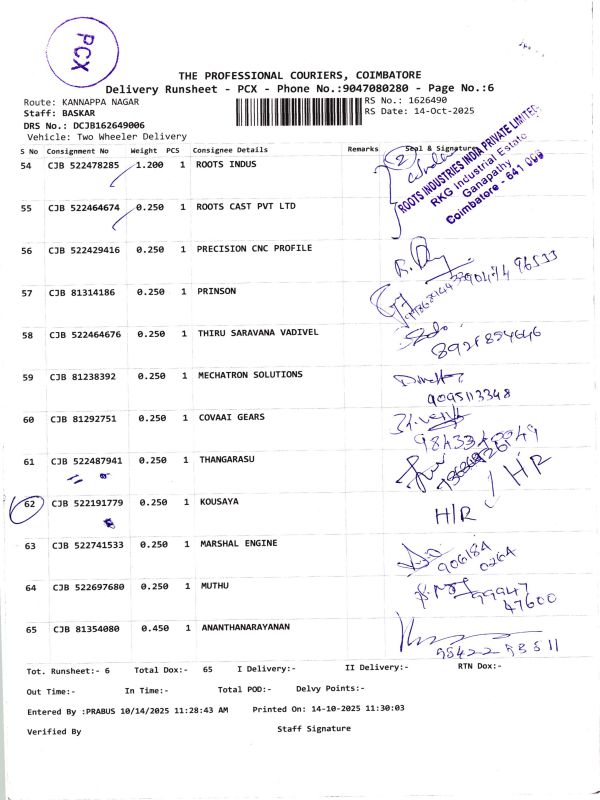 PCX
THE PROFESSIONAL COURIERS, COIMBATORE
Delivery Runsheet - PCX - Phone No.:9047080280 - Page No.:6
Route: KANNAPPA NAGAR
RS No.: 1626490
Staff: BASKAR
RS Date: 14-Oct-2025
DRS No.: DCJB162649006
Vehicle: Two Wheeler Delivery
S No Consignment No Weight PCS Consignee Details Remarks Seal & Signature
54 CJB 522478285 1.200 1 ROOTS INDUS
2
ROOTS INDUSTRIES INDIA PRIVATE LIMITED
RKG Industrial Estate
Ganapathy
Coimbatore - 641 006
55 CJB 522464674 0.250 1 ROOTS CAST PVT LTD
56 CJB 522429416 0.250 1 PRECISION CNC PROFILE
90474 96533
57 CJB 81314186 0.250 1 PRINSON
58 CJB 522464676 0.250 1 THIRU SARAVANA VADIVEL
59 CJB 81238392 0.250 1 MECHATRON SOLUTIONS
9095113348
60 CJB 81292751 0.250 1 COVAAI GEARS
61 CJB 522487941 0.250 1 THANGARASU
H/R
62 CJB 522191779 0.250 1 KOUSAYA
H/R
63 CJB 522741533 0.250 1 MARSHAL ENGINE
906184
0264
64 CJB 522697680 0.250 1 MUTHU
99947
47600
65 CJB 81354080 0.450 1 ANANTHANARAYANAN
Tot. Runsheet:- 6 Total Dox:- 65 I Delivery:- II Delivery:- RTN Dox:-
Out Time:- In Time:- Total POD:- Delvy Points:-
Entered By :PRABUS 10/14/2025 11:28:43 AM Printed On: 14-10-2025 11:30:03
Verified By Staff Signature